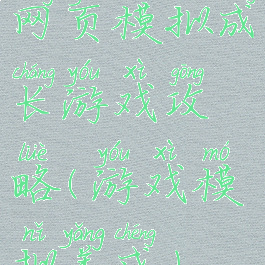 网页模拟成
chéng yóu xì gōng
长游戏攻
lüè yóu xì mó
略(游戏模
nǐ yǎng chéng